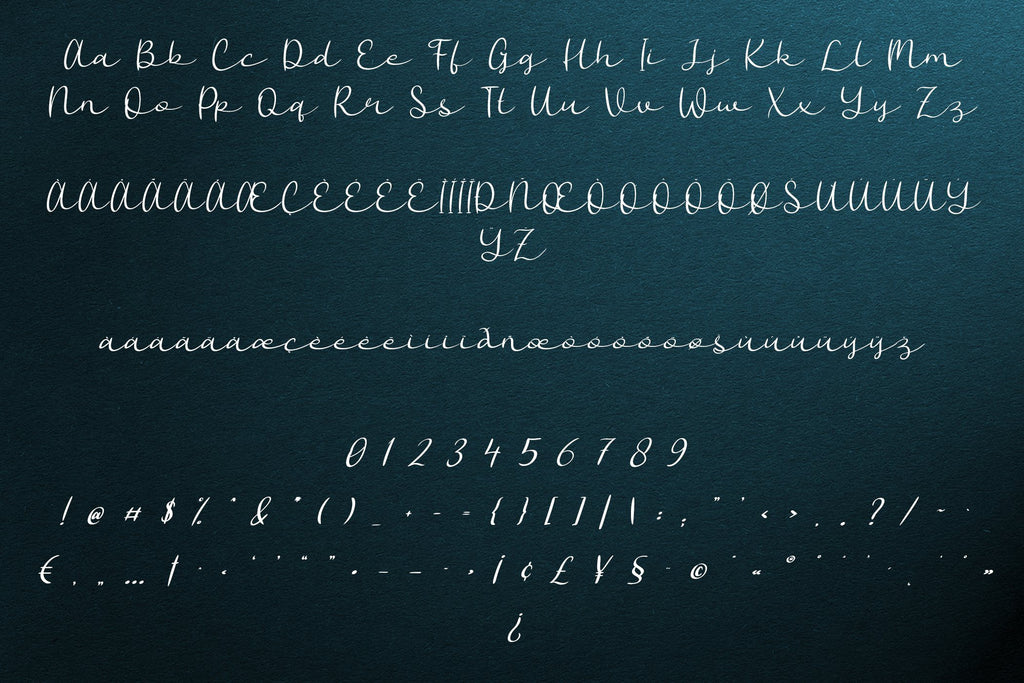 Aa Bb Cc Dd Ee Ff Gg Hh Ii Jj Kk Ll Mm
Nn Oo Pp Qq Rr Ss Tt Uu Vv Ww Xx Yy Zz
ÀÁÂÃÄÅÆÇÈÉÊËÌÍÎÏÐÑŒÒÓÔÕÖØŠÙÚÛÜÝ
ŸŽ
àáâãäåæçèéêëìíîïðñœòóôõöøšùúûüýÿž
0 1 2 3 4 5 6 7 8 9
! @ # $ % ^ & * ( ) _ + - = { } [ ] / \ : ; " ' < > , . ? / ~ `
€ ‚ „ … † ‹ ‘ ’ “ ” • – — › ¡ ¢ £ ¥ § © « ° »
¿